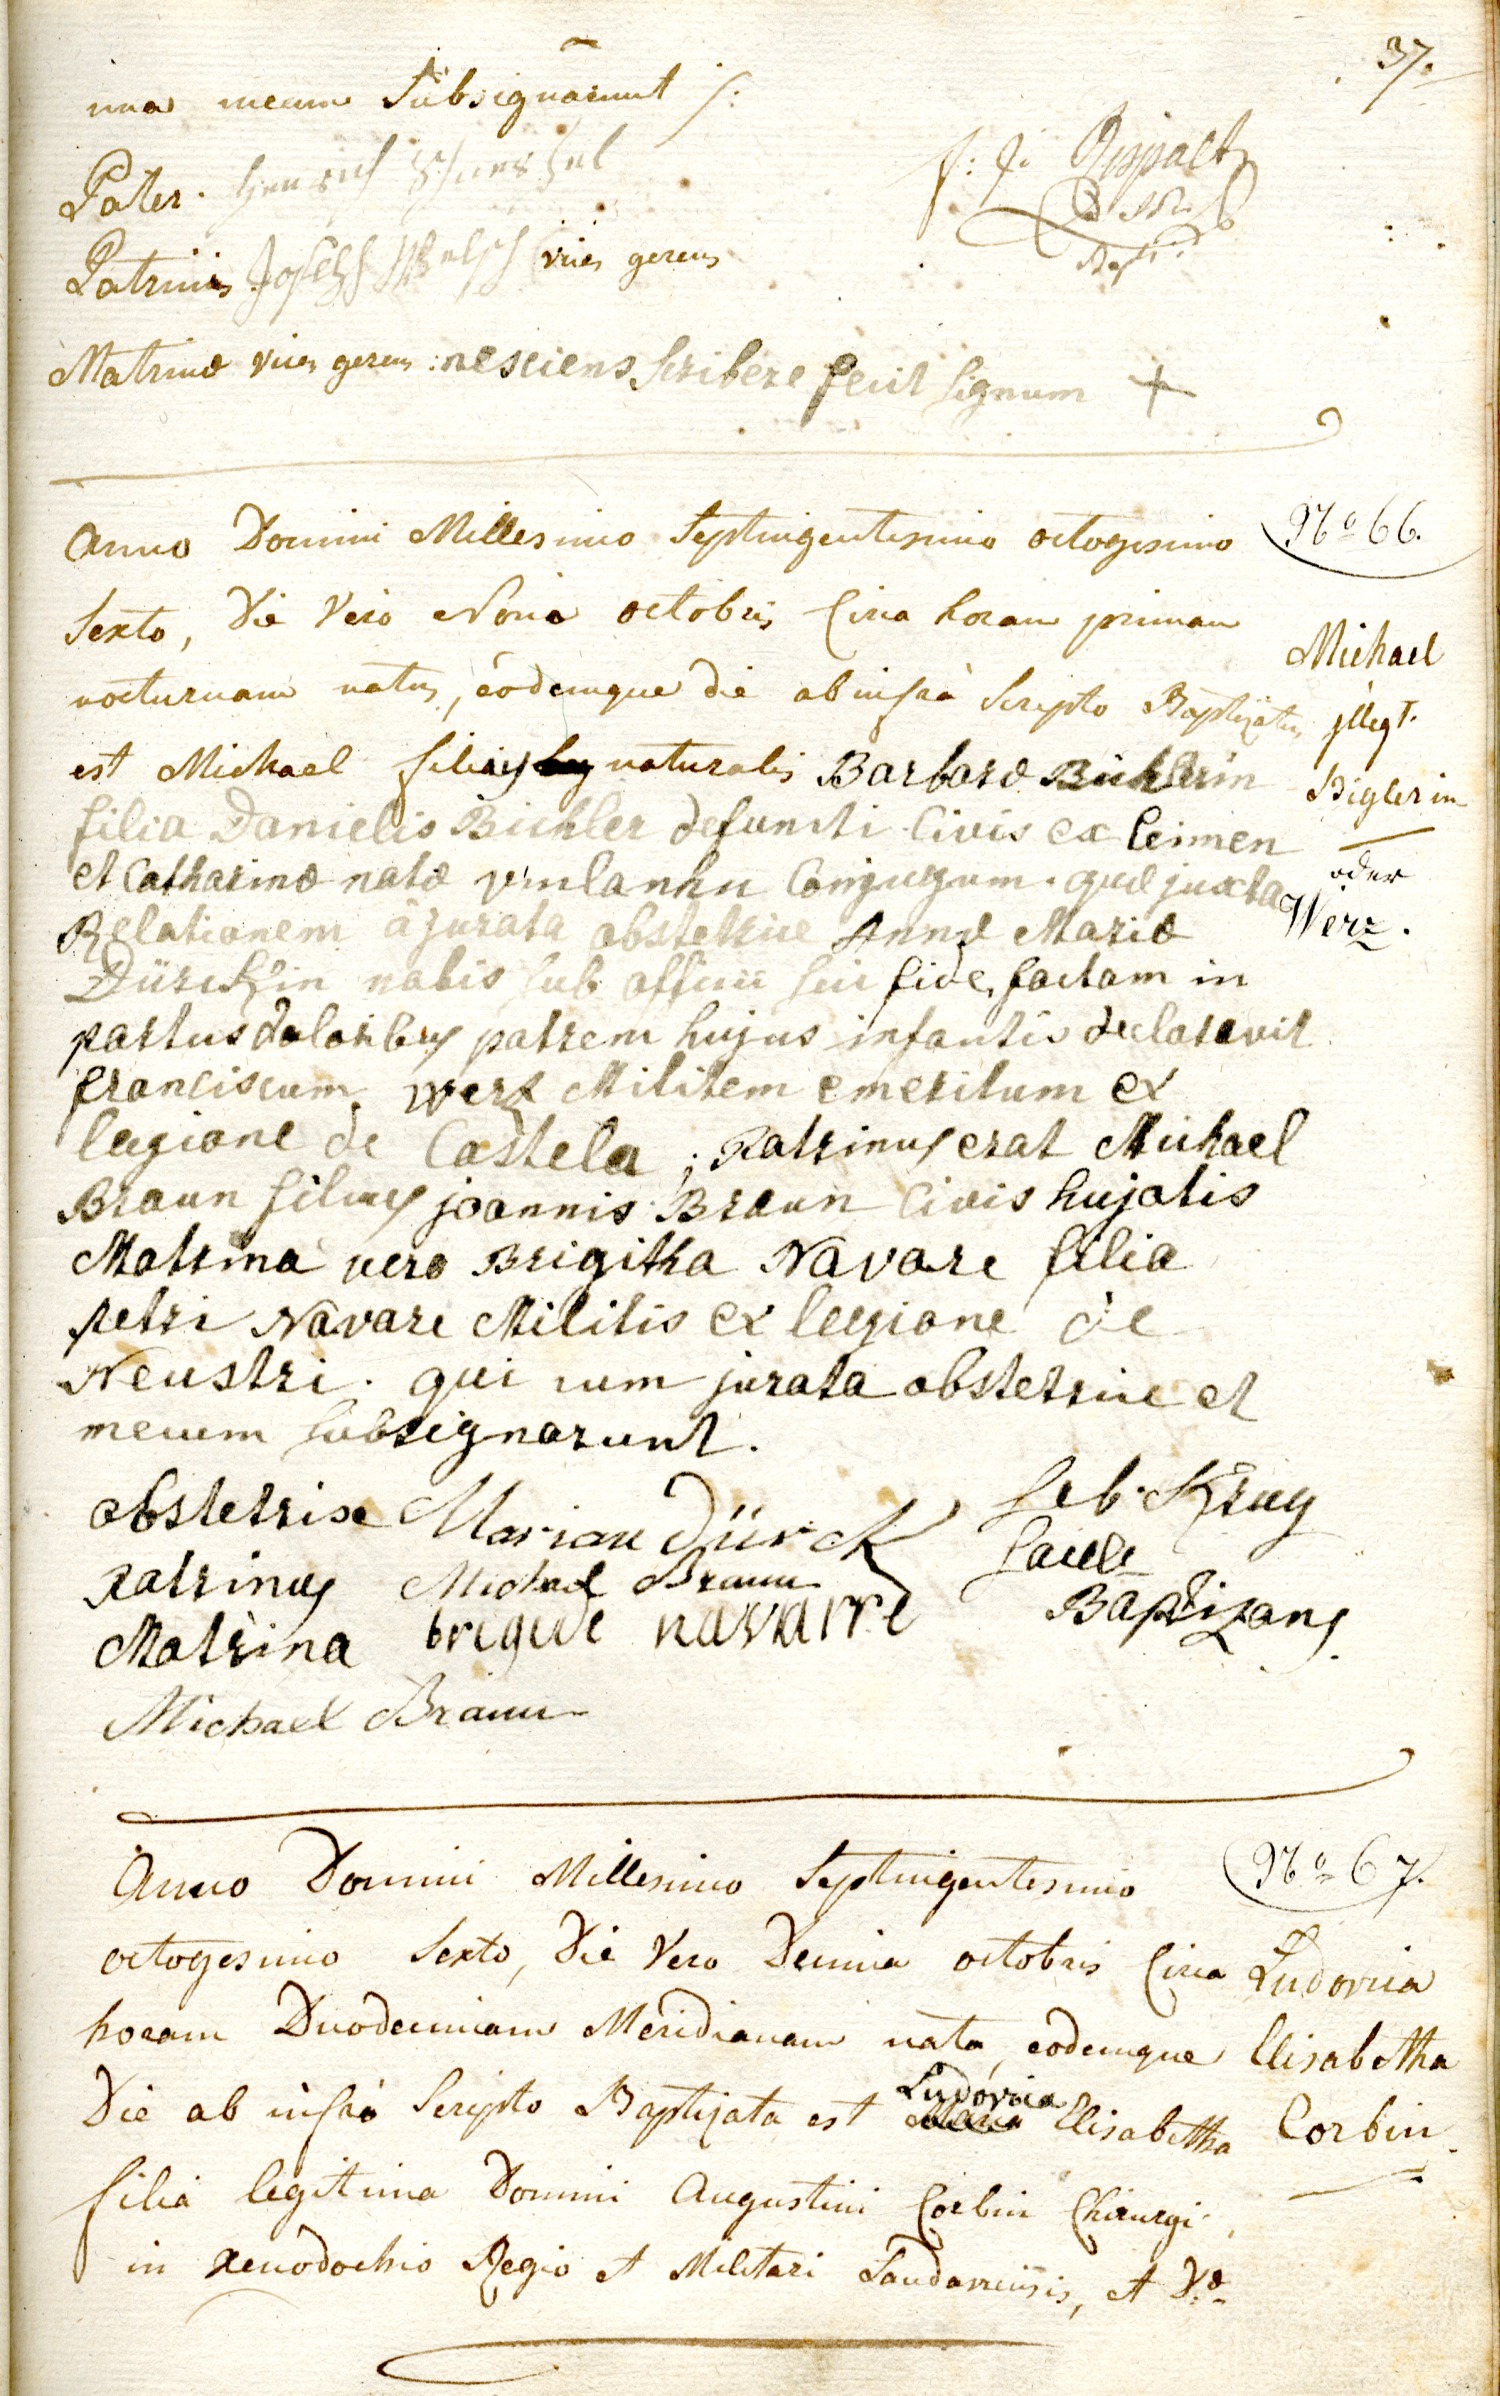 37.
una mecum Subsignarunt /:
Pater. Henrich
Patrinus Joseph Welsch vices gerens
Matrinæ vices gerens: nesciens scribere fecit signum +
Anno Domini Millesimo Septingentesimo octogesimo
Sexto, Die Vero Nona octobris Circa horam primam
nocturnam natus, eodemque die ab infrà Scripto Baptizatus
est Michael filius naturalis Barbaræ Bichlerin
filia Danielis Bichler defuncti Civis ex leimen
et Catharinæ natæ Conjugum. quæ juxta
Relationem à jurata obstetrice Annæ Mariæ
Dürckin nobis sub officii sui fide, factam in
partus doloribus patrem hujus infantis declaravit
franciscum Werz Militem emeritum ex
legione de Castela; Patrinus erat Michael
Braun filius joannis Braun Civis hujatis
Matrina vero Brigitha Navare filia
petri Navare Militis ex legione de
Neustri. qui cum jurata obstetrice et
mecum subsignarunt.
obstetrixe Marian Dürck
patrinus Michael Braun
Matrina brigide navarre
Michael Braun
Seb. Krug
Baptizans.
No 66.
Michael
jllegt.
Biglerin
oder
Werz.
Anno Domini Millesimo Septingentesimo
octogesimo Sexto, Die Vero Decima octobris Circa
horam Duodecimam Meridianam nata, eodemque
Die ab infrà Scripto Baptizata est Ludovica Elisabetha
filia legitima Domini Augustini Corbin Chirurgi
in Xenodochio Regio et Militari Landaviensis, et Dæ
No 67.
Ludovica
Elisabetha
Corbin.